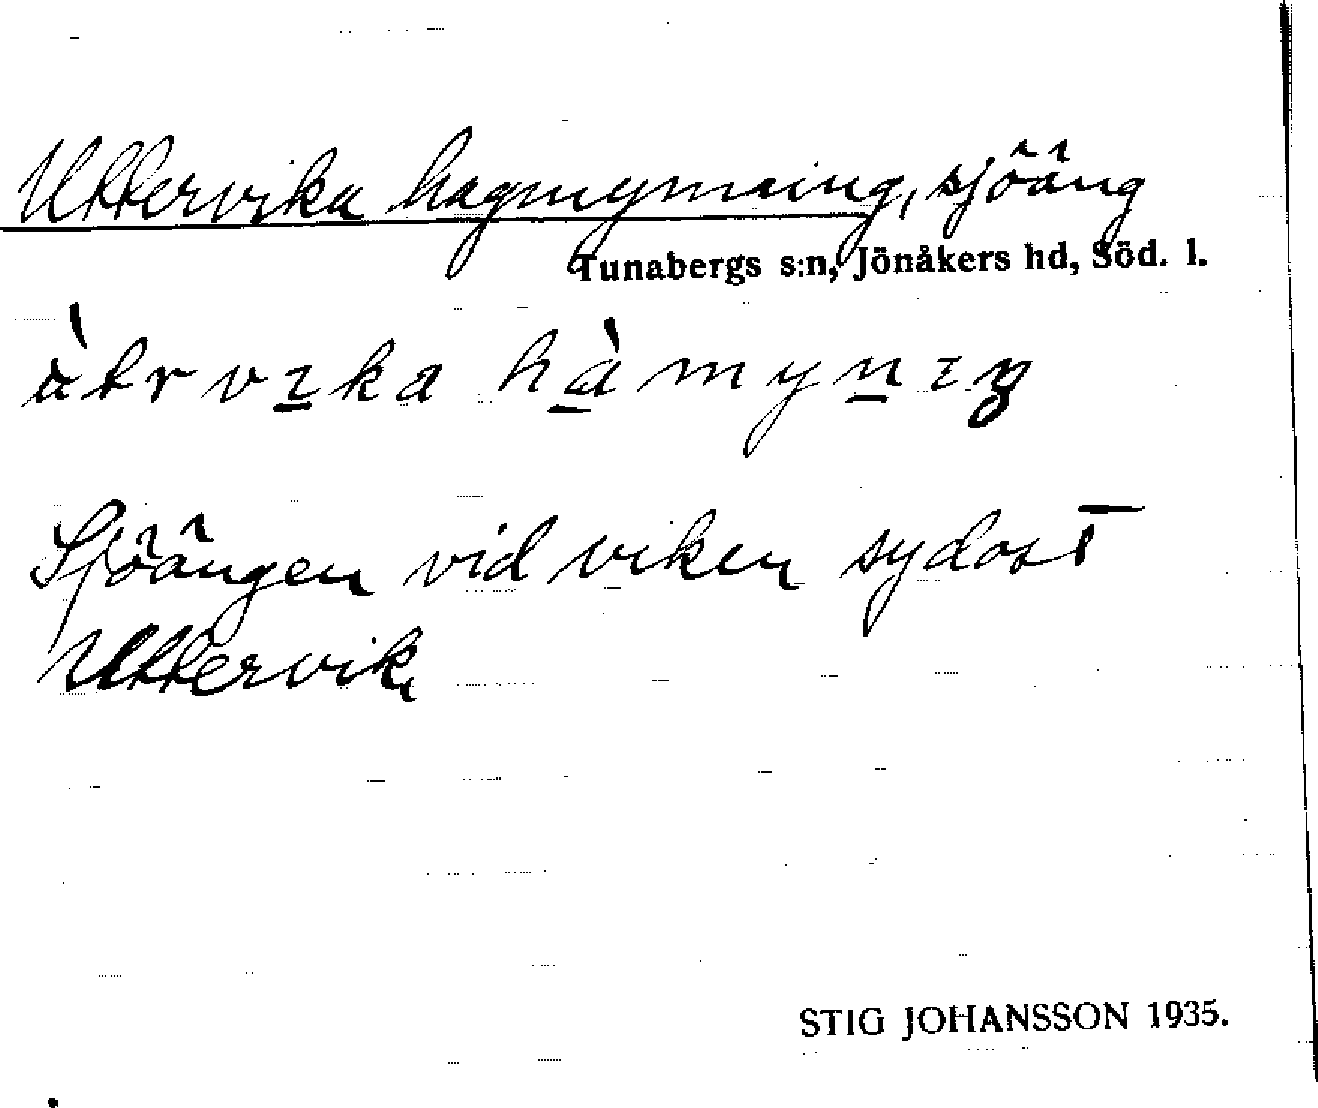 Uttervika hagmynning, sjöäng
Tunabergs s:n, Jönåkers hd, Söd. l.
Sjöängen vid viken sydost
Uttervik
STIG JOHANSSON 1935.